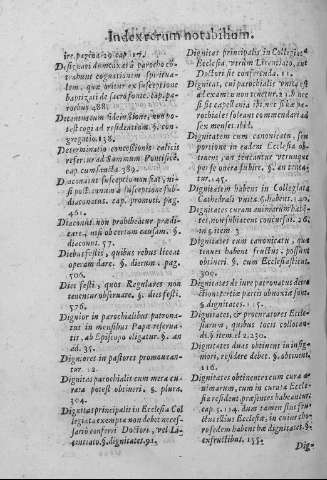 Index rerum notabilium.
ire. pagina 29. cap. 17.
Designati dumtaxat à parocho cō-
trahunt cognationem spiritua-
lem, quæ oritur ex susceptione
baptizati de sacro fonte. cap. pa-
rochus 488.
gregatio. 138.
Determinatio concessionis calicis
referur ad Summum Pontificē.
cap. cum lenda. 389.
Diaconatus susceptionem
si post annum à susceptione sub-
diaconatus. cap. promoti. pag.
461.
Diaconi non prohibētur prædi-
care, nisi ob certam causam. §.
diaconi. 57.
Diebus festis, quibus rebus liceat
operam dare. §. dierum. pag.
506.
Dies festi, quos Regulares non
tenentur observare. §. dies festi.
576.
Dignior in parochialibus patrona-
tus in mensibus Papæ reserua-
tis, ab Episcopo eligatur. §. an
ad. 35.
Digniores in pastores promouean-
tur. 12.
Dignitas parochialis cum mera cu-
rata potest obtineri. §. plura.
304.
Dignitas principalis in Ecclesia Col
legiata exempta non debet neces-
sario conferri Doctori, vel Li-
centiato. §. dignitatē. 91.
Dignitas principalis in Collegiata
Ecclesia, verum Licentiato, aut
Doctori sit conferenda. 11.
Dignitas, cui parochialis vnita est,
ad examen non tenetur. 18. nec
si sit capellania
rochiales soleant commendari ad
sex menses ibid.
Dignitatem cum canonicatu, seu
portione in eadem Ecclesia ob-
tinens, an teneatur vtrumque
per se opera subire. §. an tenea-
tur. 145.
Dignitatem habens in Collegiata
Cathedrali vnita. §. habens. 140.
Dignitates curam animarum habē-
tes, non subiacent concursui. 26.
in §. item 3
Dignitates cum canonicatu, quo
tenues habent fructus, possunt
obtineri. §. cum Ecclesiasticus.
300.
§ dignitates. 115.
Dignitates, & procuratores Eccle-
siarum, quibus locis collocan-
di. §. item el 2. 230.
Dignitates duas obtinens in insig-
nori, residere debet. §. obtinens,
116.
Dignitates obtinentes cum cura a-
nimarum, cum in curatis Eccle-
sijs resident præsentes habeantur.
cap. 5. 114. dum tamen sint fru-
ctus illius Ecclesiæ, in cuius cho-
ro sedem habent hæ dignitates. §.
ex fructibus. 135.
Dig-